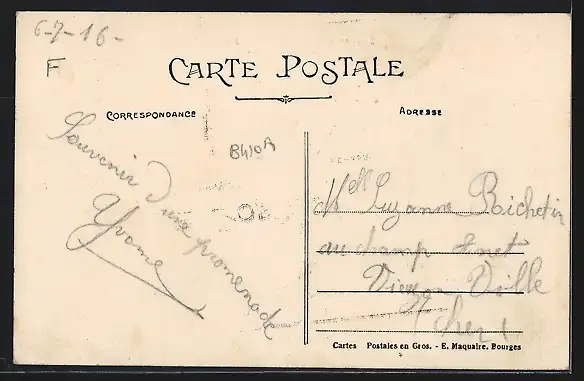 6-7-16-
F
CARTE POSTALE
CORRESPONDANCE
ADRESSE
B410A
Souvenir d'une promenade
Yvonne
Mell Suzanne Richetin
au champ
Vierzon Ville
Cher
Cartes Postales en Gros. - E. Maquaire, Bourges